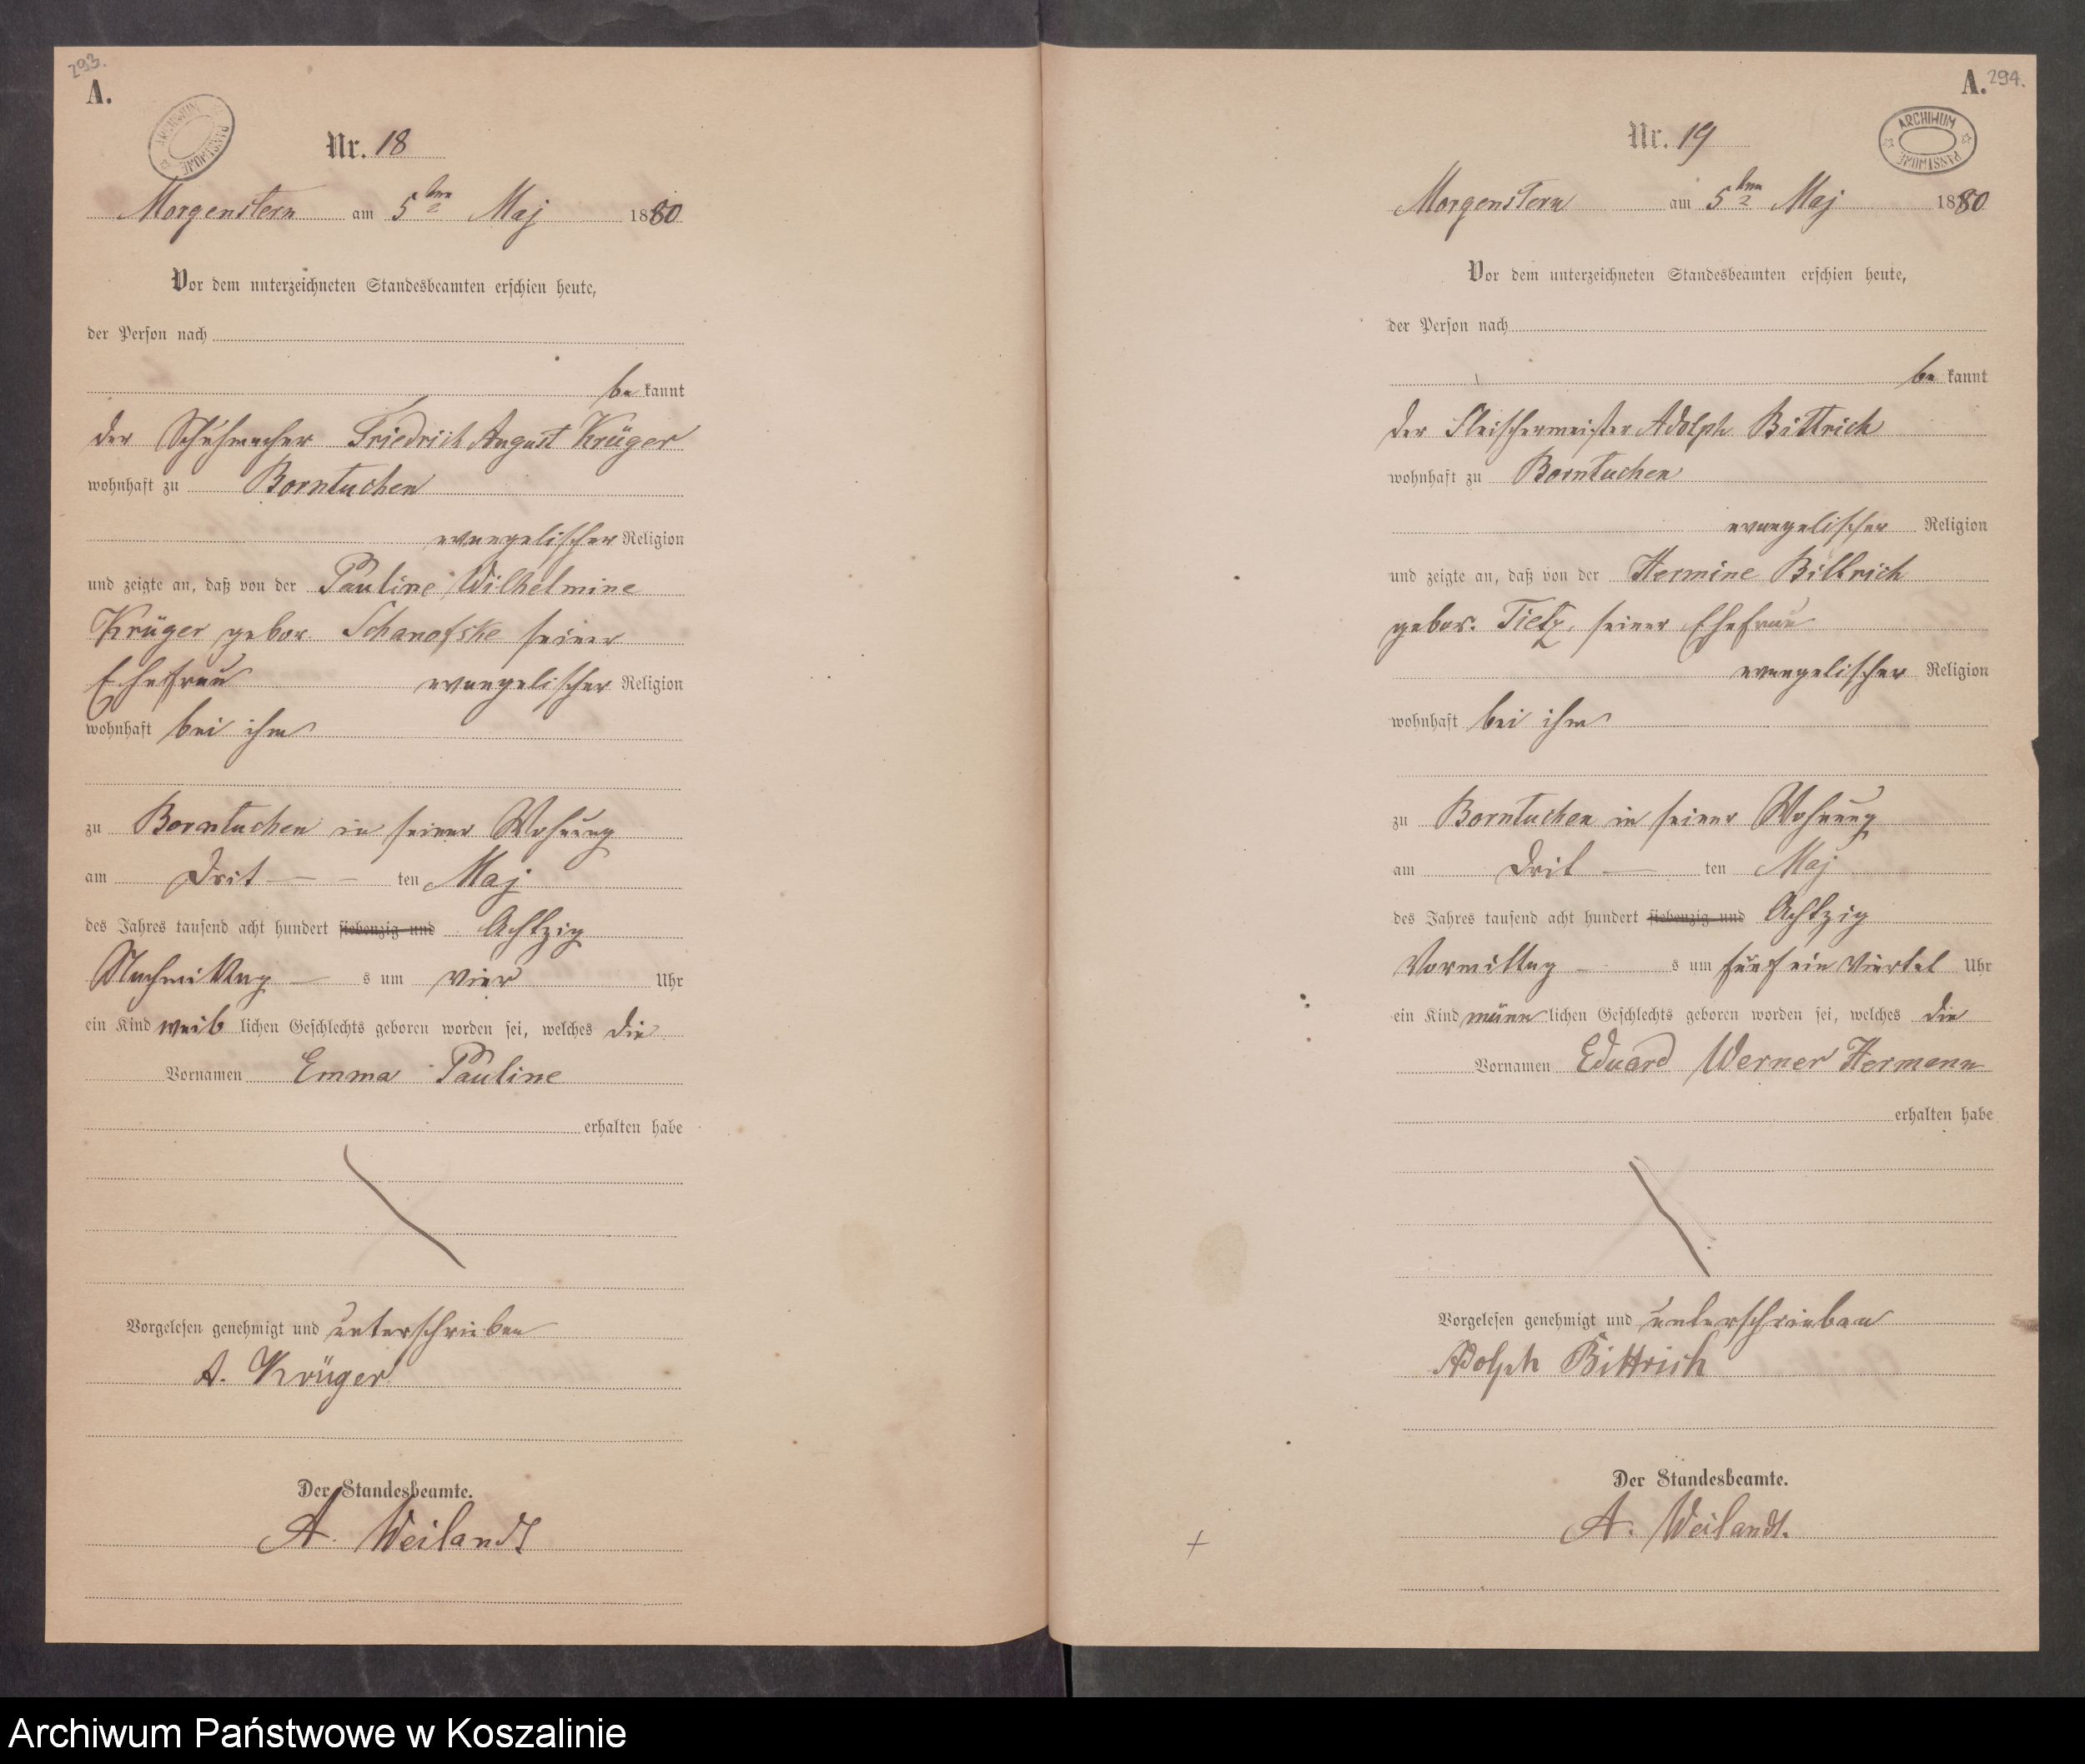 293.
A.
ARCHIWUM PAŃSTWOWE
Nr. 18
Morgenstern am 5ten Maj 1880
Vor dem unterzeichneten Standesbeamten erschien heute,
der Person nach
be kannt
der Schuhmacher Friedrich August Krüger
wohnhaft zu Borntuchen
evangelischer Religion
und zeigte an, daß von der Pauline Wilhelmine
Krüger gebor. Schanofske seiner
Ehefrau evangelischer Religion
wohnhaft bei ihm
zu Borntuchen in seiner Wohnung
am Drit — - ten Maj
des Jahres tausend acht hundert siebenzig und Achtzig
Nachmittag — s um vier Uhr
ein Kind weib lichen Geschlechts geboren worden sei, welches die
Vornamen Emma Pauline
erhalten habe
Vorgelesen genehmigt und unterschrieben
A. Krüger
Der Standesbeamte.
A. Weilandt
A. 294.
ARCHIWUM PAŃSTWOWE
Nr. 19
Morgenstern am 5ten Maj 1880
Vor dem unterzeichneten Standesbeamten erschien heute,
der Person nach
be kannt
der Fleischermeister Adolph Bittrich
wohnhaft zu Borntuchen
evangelischer Religion
und zeigte an, daß von der Hermine Bittrich
gebor. Tietz, seiner Ehefrau
evangelischer Religion
wohnhaft bei ihm
zu Borntuchen in seiner Wohnung
am Drit — ten Maj
des Jahres tausend acht hundert siebenzig und Achtzig
Vormittag - s um fünf ein Viertel Uhr
ein Kind männ lichen Geschlechts geboren worden sei, welches die
Vornamen Eduard Werner Hermann
erhalten habe
Vorgelesen genehmigt und unterschrieben
Adolph Bittrich
Der Standesbeamte.
A. Weilandt.
Archiwum Państwowe w Koszalinie